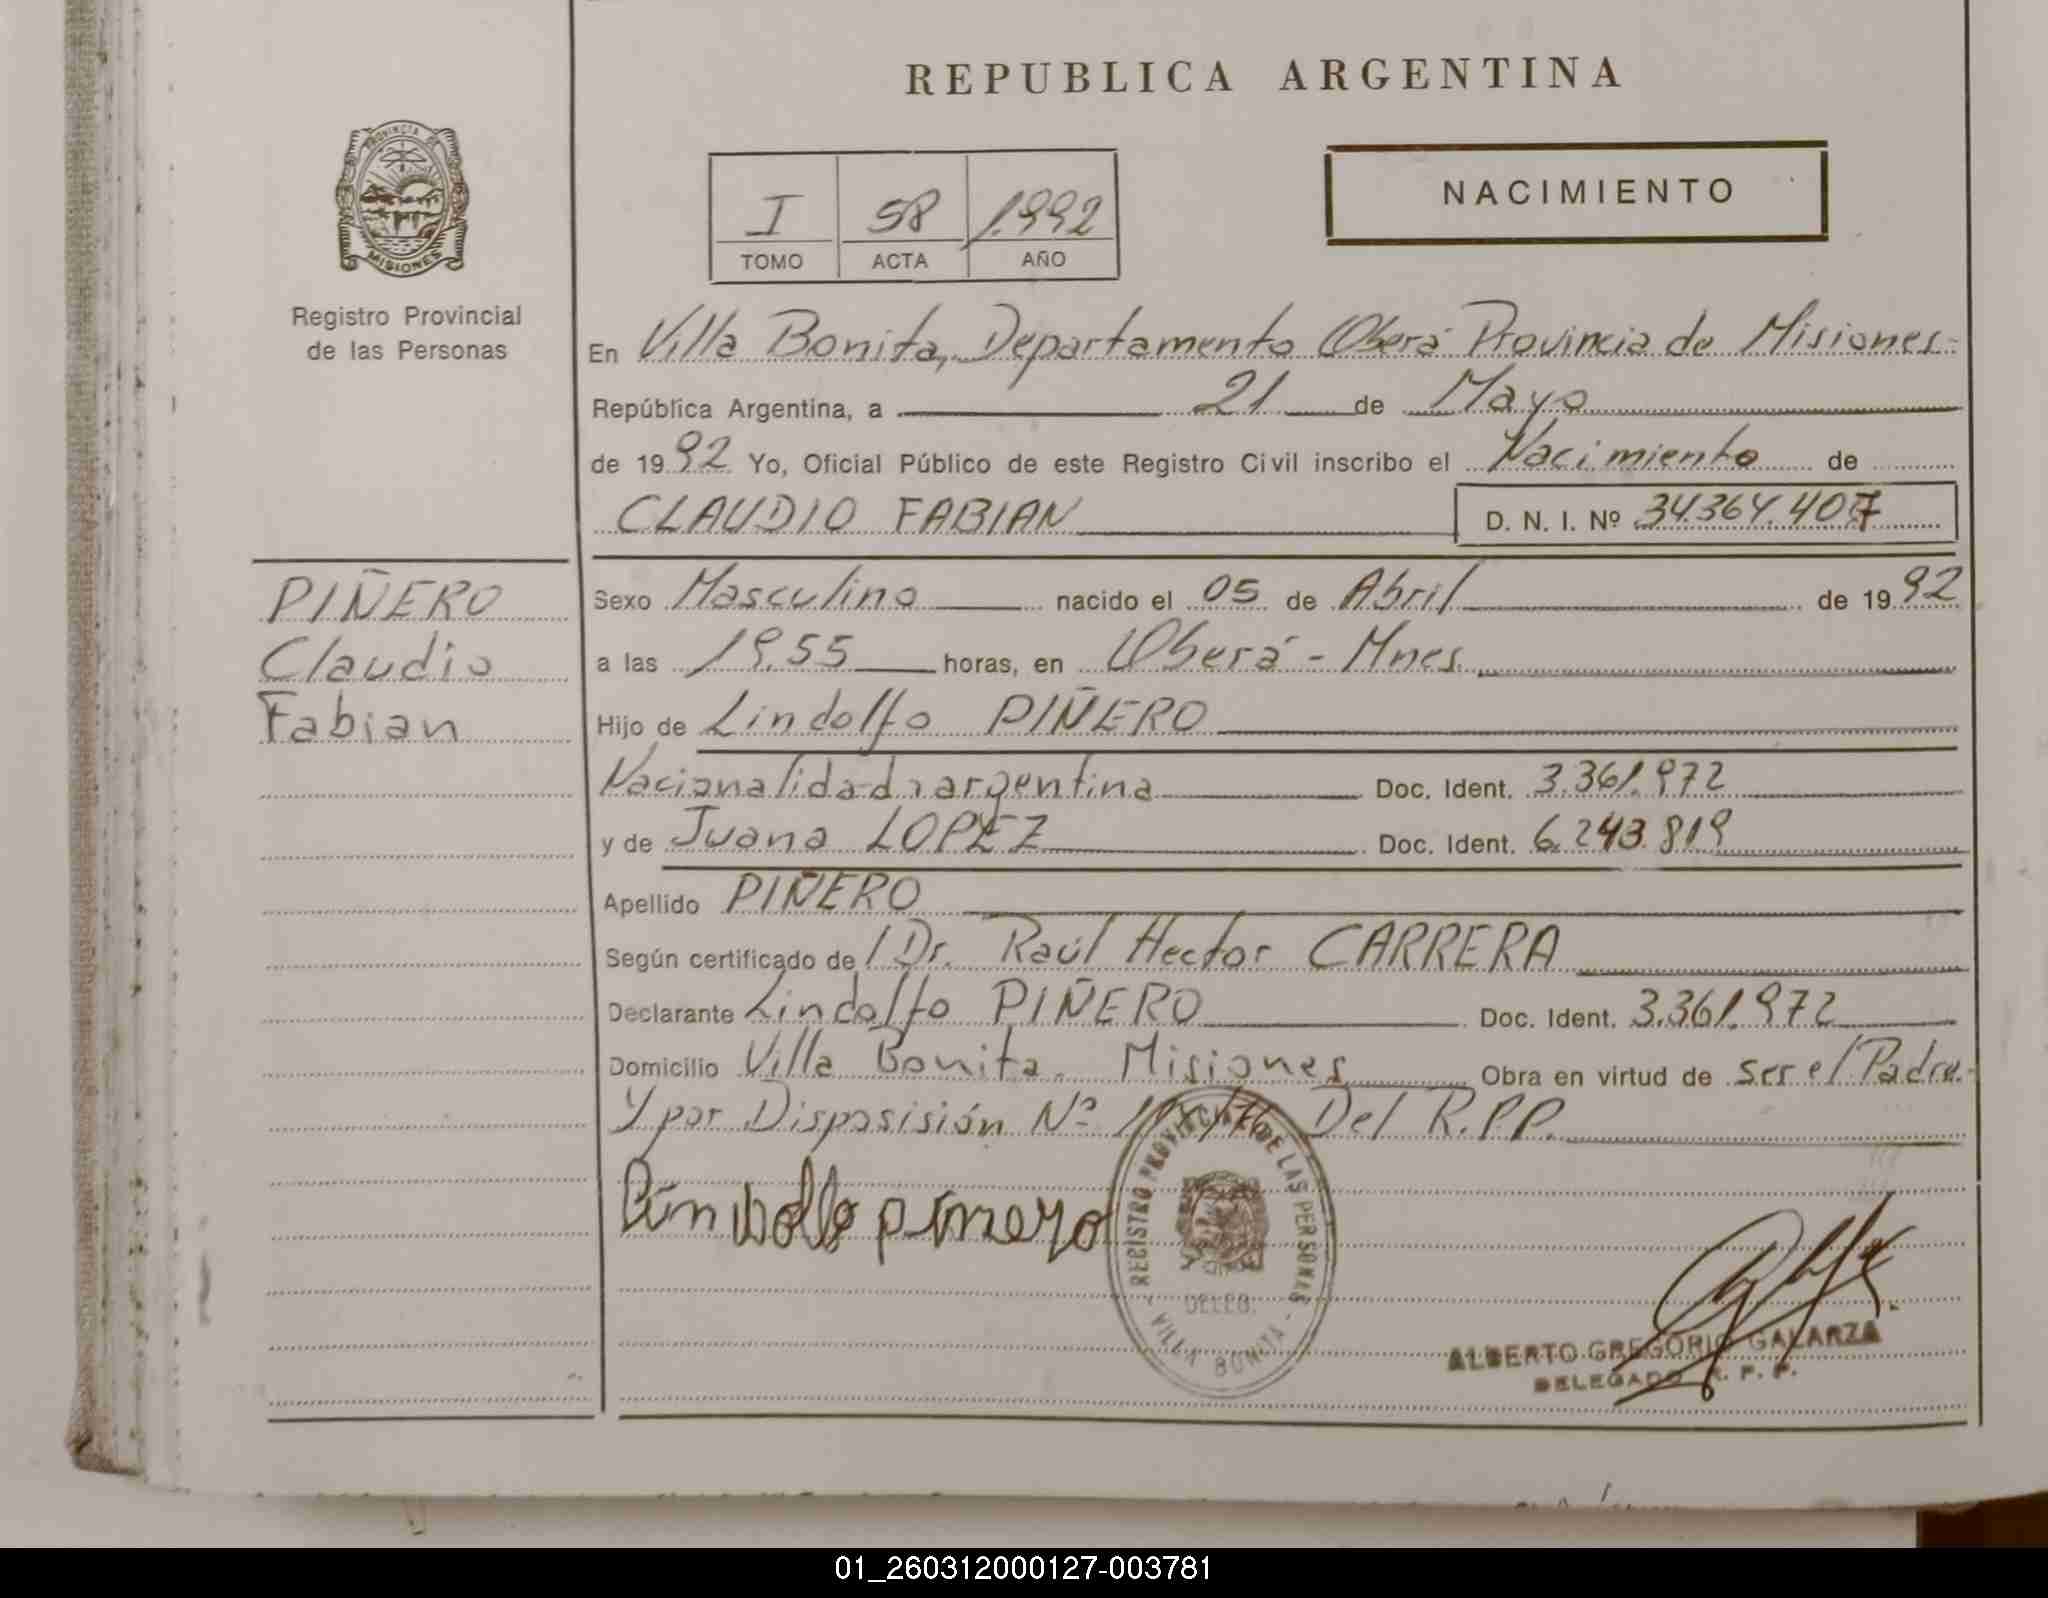 REPUBLICA ARGENTINA
PROVINCIA DE
MISIONES
Registro Provincial
de las Personas
I 58 1.992
TOMO ACTA AÑO
NACIMIENTO
En Villa Bonita, Departamento Oberá Provincia de Misiones-
República Argentina, a 21 de Mayo
de 1992 Yo, Oficial Público de este Registro Civil inscribo el Nacimiento de
CLAUDIO FABIAN D. N. I. Nº 34.364.407
PIÑERO
Claudio
Fabian
Sexo Masculino nacido el 05 de Abril de 1992
a las 19.55 horas, en Oberá - Mnes.
Hijo de Lindolfo PIÑERO
Nacionalidad argentina Doc. Ident. 3.361.972
y de Juana LOPEZ Doc. Ident. 6.243.819
Apellido PIÑERO
Según certificado de / Dr. Raúl Hector CARRERA
Declarante Lindolfo PIÑERO Doc. Ident. 3.361.972
Domicilio Villa Bonita. Misiones Obra en virtud de ser el Padre.-
Y por Disposisión Nº /76 Del R.P.P.
REGISTRO PROVINCIAL DE LAS PERSONAS
DELEG.
- VILLA BONITA -
ALBERTO GREGORIO GALARZA
DELEGADO R. P. P.
01_260312000127-003781